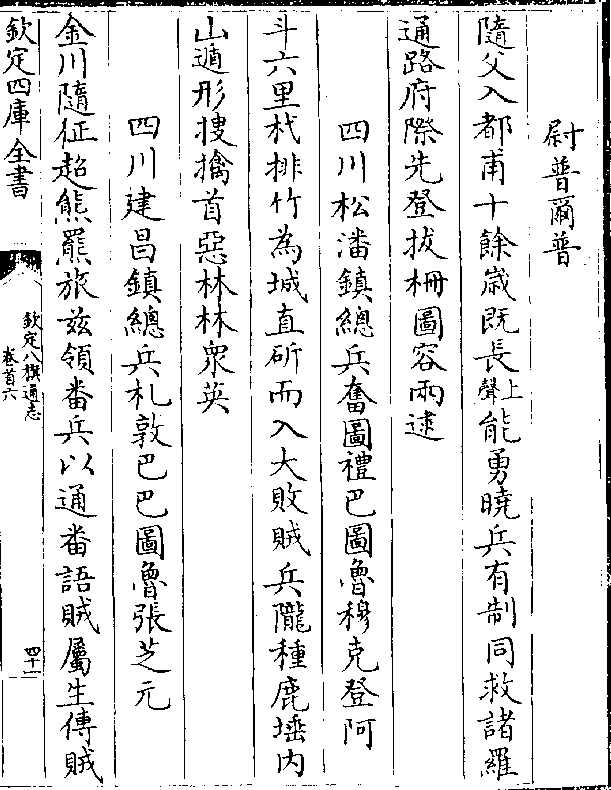 尉普爾普
隨父入都甫十餘歳既長上聲能勇曉兵有制同救諸羅
通路府際先登拔柵圖容兩逮
四川松潘鎮總兵奮圖禮巴圖魯穆克登阿
斗六里杙排竹為城直斫而入大敗賊兵隴種鹿埵内
山遁形捜擒首惡林林衆英
四川建昌鎮總兵札敦巴巴圖魯張芝元
金川隨征超熊羆旅兹領畨兵以通畨語賊屬生傳賊
欽定四庫全書
欽定八旗通志
卷首六
四十一